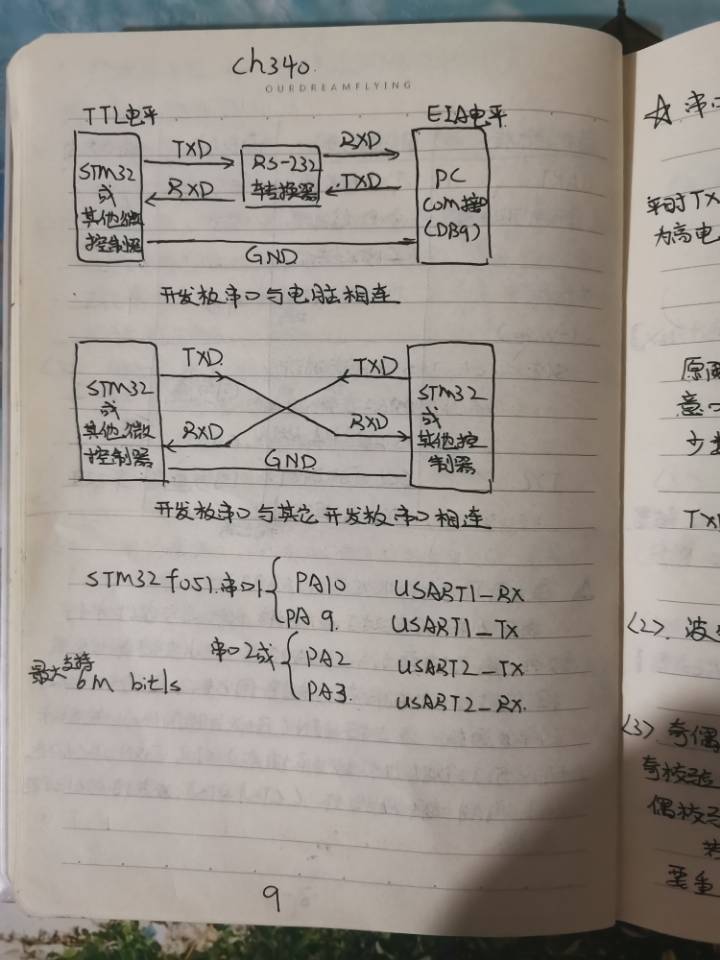 ch340
OURDREAMFLYING
TTL电平
EIA电平
STM32
或
其他微
控制器
TXD
RXD
RS-232
转换器
RXD
TXD
PC
COM接口
(DB9)
GND
开发板串口与电脑相连
STM32
或
其他微
控制器
TXD
RXD
TXD
RXD
GND
STM32
或
其他控
制器
开发板串口与其它开发板串口相连
STM32f051.串口1 PA10 USART1_RX
PA9. USART1_TX
串口2或 PA2 USART2_TX
PA3. USART2_RX.
最大支持
6M bit/s
9
☆ 串口
平时TX
为高电
原
意
少
TXD
(2). 波
(3) 奇偶
奇校验
偶校
若
要重